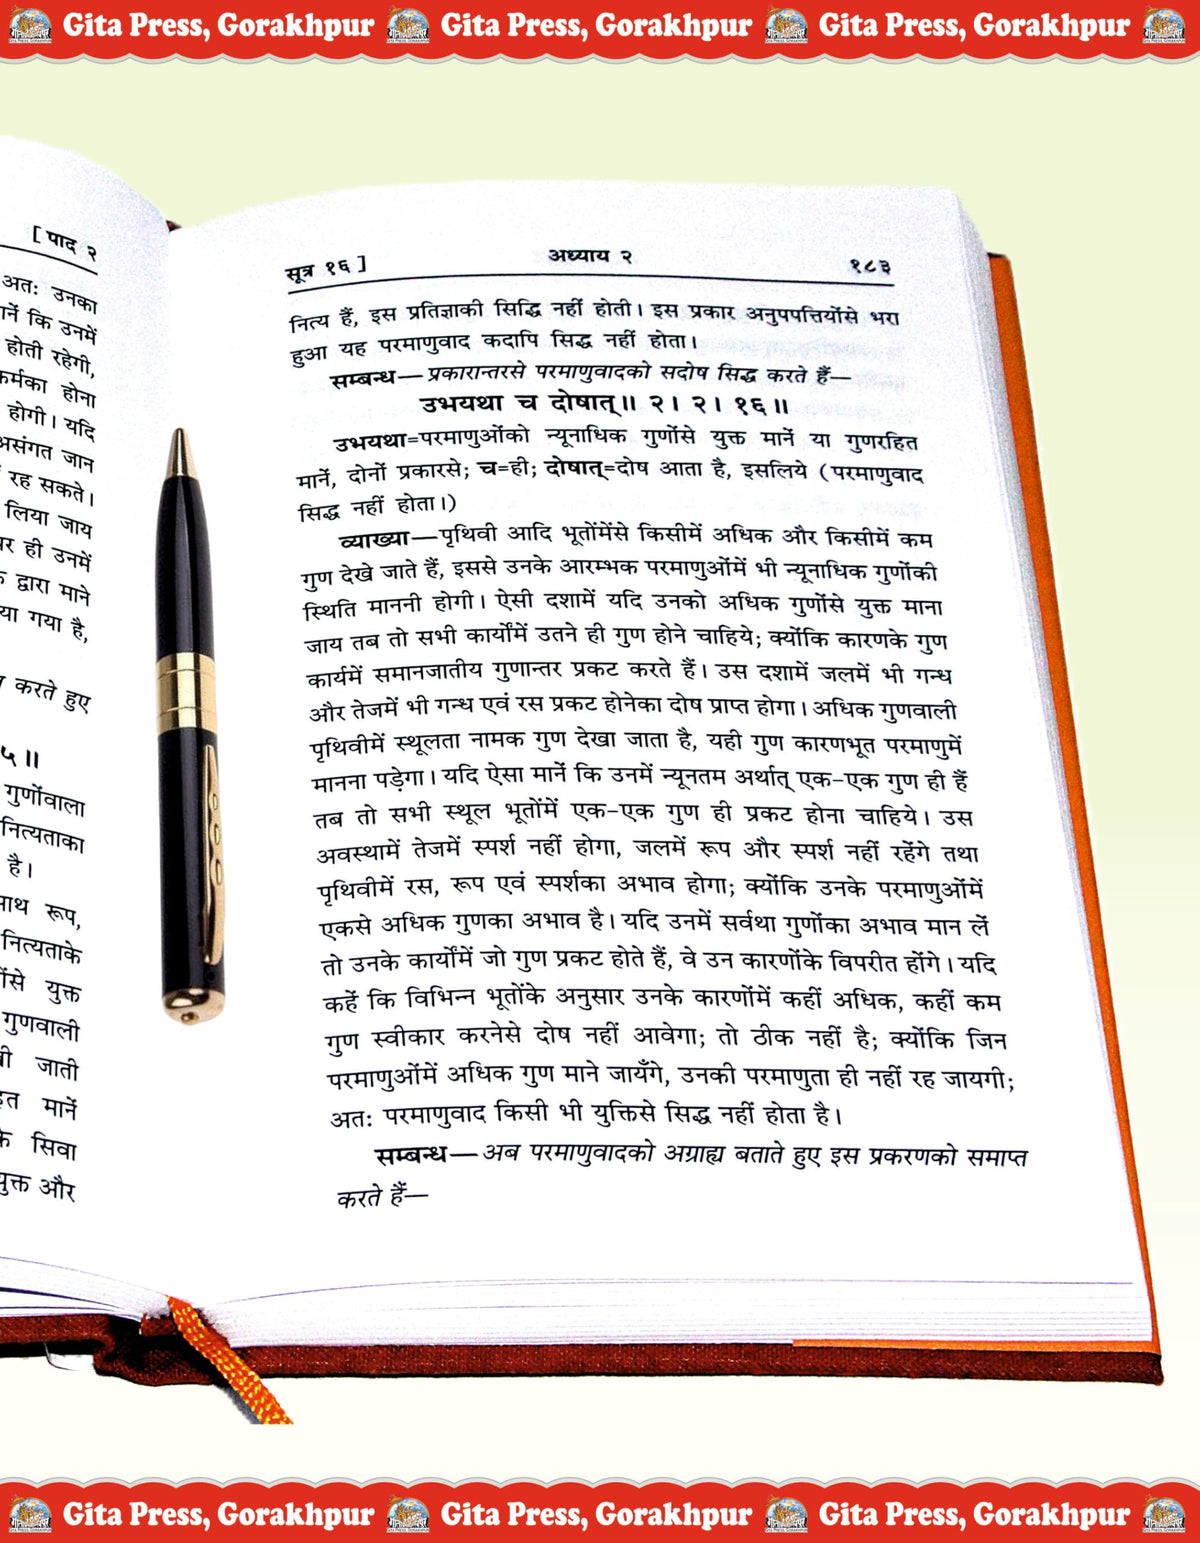 Gita Press, Gorakhpur Gita Press, Gorakhpur Gita Press, Gorakhpur
[ पाद २
अतः उनका
कि उनमें
होती रहेगी,
होना
होगी। यदि
असंगत जान
रह सकते।
लिया जाय
ही उनमें
द्वारा माने
गया है,
करते हुए
५॥
गुणोंवाला
नित्यताका
है।
रूप,
नित्यताके
युक्त
गुणवाली
जाती
मानें
सिवा
और
सूत्र १६ ] अध्याय २ १८३
नित्य हैं, इस प्रतिज्ञाकी सिद्धि नहीं होती। इस प्रकार अनुपपत्तियोंसे भरा
हुआ यह परमाणुवाद कदापि सिद्ध नहीं होता।
सम्बन्ध—प्रकारान्तरसे परमाणुवादको सदोष सिद्ध करते हैं—
उभयथा च दोषात्॥ २। २। १६॥
उभयथा=परमाणुओंको न्यूनाधिक गुणोंसे युक्त मानें या गुणरहित
मानें, दोनों प्रकारसे; च=ही; दोषात्=दोष आता है, इसलिये (परमाणुवाद
सिद्ध नहीं होता।)
व्याख्या—पृथिवी आदि भूतोंमेंसे किसीमें अधिक और किसीमें कम
गुण देखे जाते हैं, इससे उनके आरम्भक परमाणुओंमें भी न्यूनाधिक गुणोंकी
स्थिति माननी होगी। ऐसी दशामें यदि उनको अधिक गुणोंसे युक्त माना
जाय तब तो सभी कार्योंमें उतने ही गुण होने चाहिये; क्योंकि कारणके गुण
कार्यमें समानजातीय गुणान्तर प्रकट करते हैं। उस दशामें जलमें भी गन्ध
और तेजमें भी गन्ध एवं रस प्रकट होनेका दोष प्राप्त होगा। अधिक गुणवाली
पृथिवीमें स्थूलता नामक गुण देखा जाता है, यही गुण कारणभूत परमाणुमें
मानना पड़ेगा। यदि ऐसा मानें कि उनमें न्यूनतम अर्थात् एक-एक गुण ही हैं
तब तो सभी स्थूल भूतोंमें एक-एक गुण ही प्रकट होना चाहिये। उस
अवस्थामें तेजमें स्पर्श नहीं होगा, जलमें रूप और स्पर्श नहीं रहेंगे तथा
पृथिवीमें रस, रूप एवं स्पर्शका अभाव होगा; क्योंकि उनके परमाणुओंमें
एकसे अधिक गुणका अभाव है। यदि उनमें सर्वथा गुणोंका अभाव मान लें
तो उनके कार्योंमें जो गुण प्रकट होते हैं, वे उन कारणोंके विपरीत होंगे। यदि
कहें कि विभिन्न भूतोंके अनुसार उनके कारणोंमें कहीं अधिक, कहीं कम
गुण स्वीकार करनेसे दोष नहीं आवेगा; तो ठीक नहीं है; क्योंकि जिन
परमाणुओंमें अधिक गुण माने जायँगे, उनकी परमाणुता ही नहीं रह जायगी;
अतः परमाणुवाद किसी भी युक्तिसे सिद्ध नहीं होता है।
सम्बन्ध—अब परमाणुवादको अग्राह्य बताते हुए इस प्रकरणको समाप्त
करते हैं—
Gita Press, Gorakhpur Gita Press, Gorakhpur Gita Press, Gorakhpur